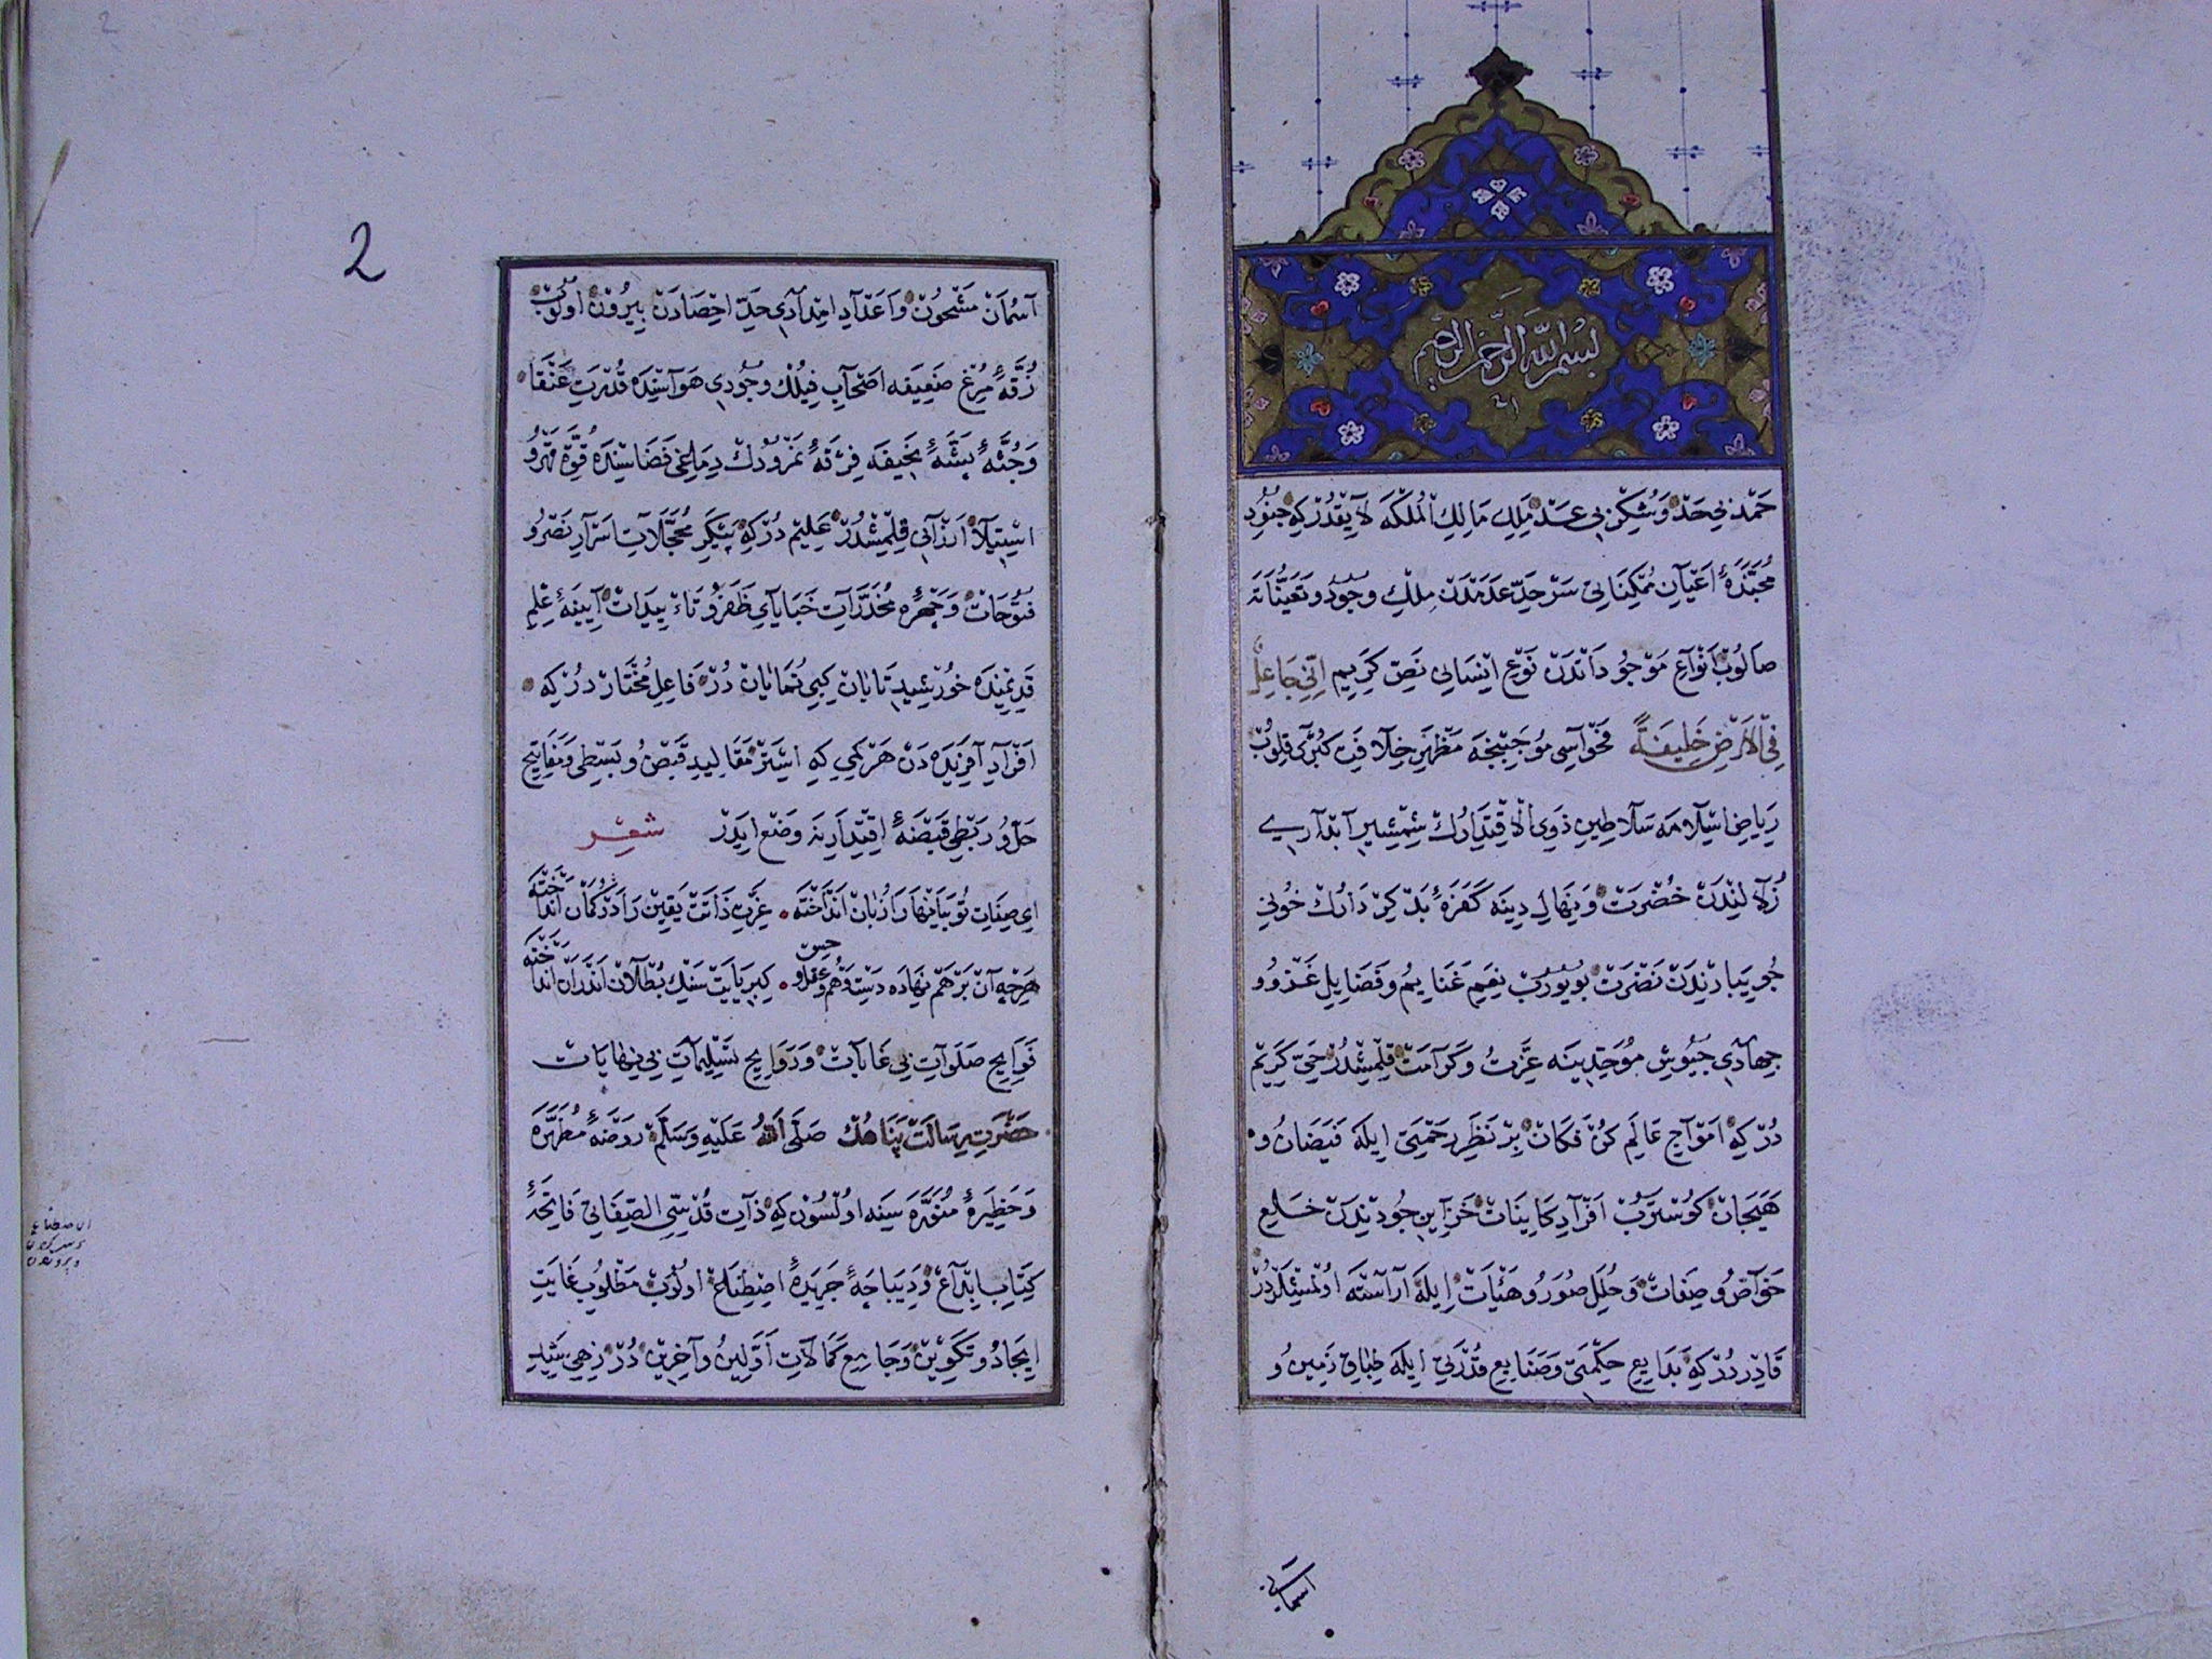 بسم الله الرحمن الرحيم
حَمْد بى حَدّ وَ شُكْر بى عَدّ مَلِك مَالِكُ الْمُلْكَه لَايِقْدُرْ كِه جُنُودِ
مُجَنَّدَهٔ اَعْيَانِ مُمْكِنَاتى سَرْحَدِّ عَدَمْدَنْ مُلْكِ وُجُودْ و تَعَيُّنَاتَه
صَالُوبْ اَنْوَاعِ مَوْجُودَاتْدَنْ نَوْعِ اِنْسَانى نَصِّ كَرِيمِ اِنِّى جَاعِلٌ
فِى الْاَرْضِ خَلِيفَةً فَحْوَاسِى مُوجَبِنْجَه مَظْهَرِ خِلَافَتِ كُبْرَى قِلُوبْ
رِيَاضِ اِسْلَامَه سَلَاطِينِ ذَوِى الْاِقْتِدَارُكْ شَمْشِيرِ آبْدَارى
زُلَالِنْدَنْ خُضْرَتْ وَ نِهَالِ دِينَه كَفَرَهٔ بَدْ كِرْدَارُكْ خُونِ
جُويبَارِنْدَنْ نَضْرَتْ بُويُورُبْ نِعَمِ غَنَايِمْ وَ فَضَايِلِ غَزْو و
جِهَادِى جُيُوشِ مُوَحِّدِينَه عِزَّتْ وَ كَرَامَتْ قِلْمِشْدُرْ حَىِّ كَرِيمْ
دُرْ كِه اَمْوَاجِ عَالَمِ كُنْ فَكَانْ بِرْ نَظَرِ رَحْمَتى اِيلَه فَيَضَانْ و
هَيَجَانْ كُوسْتَرُبْ اَفْرَادِ كَايِنَاتْ خَزَايِنِ جُودِنْدَنْ خِلَعِ
خَوَاصّ و صِفَاتْ وَ حُلَلِ صُوَرْ و هَيْآتْ اِيلَه آرَاسْتَه اُولْمِشْلَرْدُرْ
قَادِرْدُرْ كِه بَدَايِعِ حِكْمَتى وَ صَنَايِعِ قُدْرَتى اِيلَه طِبَاقِ زَمِينْ و
آسمانى
2
آسْمَانْ مَشْحُونْ وَ اَعْدَادِ اِمْدَادِى حَدِّ اِحْصَادَنْ بِيرُونْ اُولُوبْ
زُقَّهٔ مُرْغِ ضَعِيفَه اَصْحَابِ فِيلُكْ وُجُودِى هَوَاسِنْدَه قُدْرَتِ عَنْقَا
وَ جُثَّهٔ پَشَّهٔ نَحِيفَه فِرْقَهٔ نَمْرُودُكْ دِمَاغى فَضَاسِنْدَه قُوَّتِ قَهْر و
اِسْتِيلَا اَرْزَانى قِلْمِشْدُرْ عَلِيمْ دُرْ كِه پَيْكَرِ مُحَجَّلَاتِ اَسْرَارِ نَصْر و
فُتُوحَاتْ وَ چِهْرَهٔ مُخَدَّرَاتِ خَبَايَاىِ ظَفَرْ و تَاءْيِيدَاتْ آيِينَهٔ عِلْمِ
قَدِيمِنْدَه خُورْشِيدِ تَابَانْ كِبِى نُمَايَانْ دُرْ فَاعِلِ مُخْتَارْ دُرْ كِه
اَفْرَادِ آفَرِينِدَه دَنْ هَرْ كِمِى كِه اِسْتَرْ مَقَالِيدِ قَبْض و بَسْطِى وَ مَفَاتِيحِ
حَلّ و رَبْطِى قَبْضَهٔ اِقْتِدَارِنَه وَضْع اِيدَرْ شعر
اى صِفَاتِ تُو بَيَانْهَا رَا زُبَانْ اَنْدَاخْتَه عِزَّتِ ذَاتَتْ يَقِينْ رَا دَرْ كُمَانْ اَنْدَاخْتَه
هَرْچِه آنْ بَرْهَمْ نِهَادَه دَسْتِ وَهْم و عَقْل و حِسّ كِبْرِيَايَتْ سَنْكِ بُطْلَانْ اَنْدَرَانْ اَنْدَاخْتَه
فَوَايِحِ صَلَوَاتِ بى غَايَاتْ وَ رَوَايِحِ تَسْلِيمَاتِ بى نِهَايَاتْ
حَضْرَتِ رِسَالَتْ پَنَاهُكْ صَلَّى اللهُ عَلَيْهِ وَسَلَّمْ رَوْضَهٔ مُطَهَّرَه
وَ حَظِيرَهٔ مُنَوَّرَه سِنَه اُولْسُونْ كِه ذَاتِ قُدْسِىُّ الصِّفَاتى فَاتِحَهٔ
كِتَابِ اِبْدَاعْ وَ دِيبَاجَهٔ جَرِيدَهٔ اِصْطِنَاعْ اُولُوبْ مَطْلُوبِ غَايَتِ
اِيجَادْ و تَكْوِينْ وَ جَامِعِ كَمَالَاتِ اَوَّلِينْ و آخِرِينْ دُرْ زِهِى سَيِّدِ